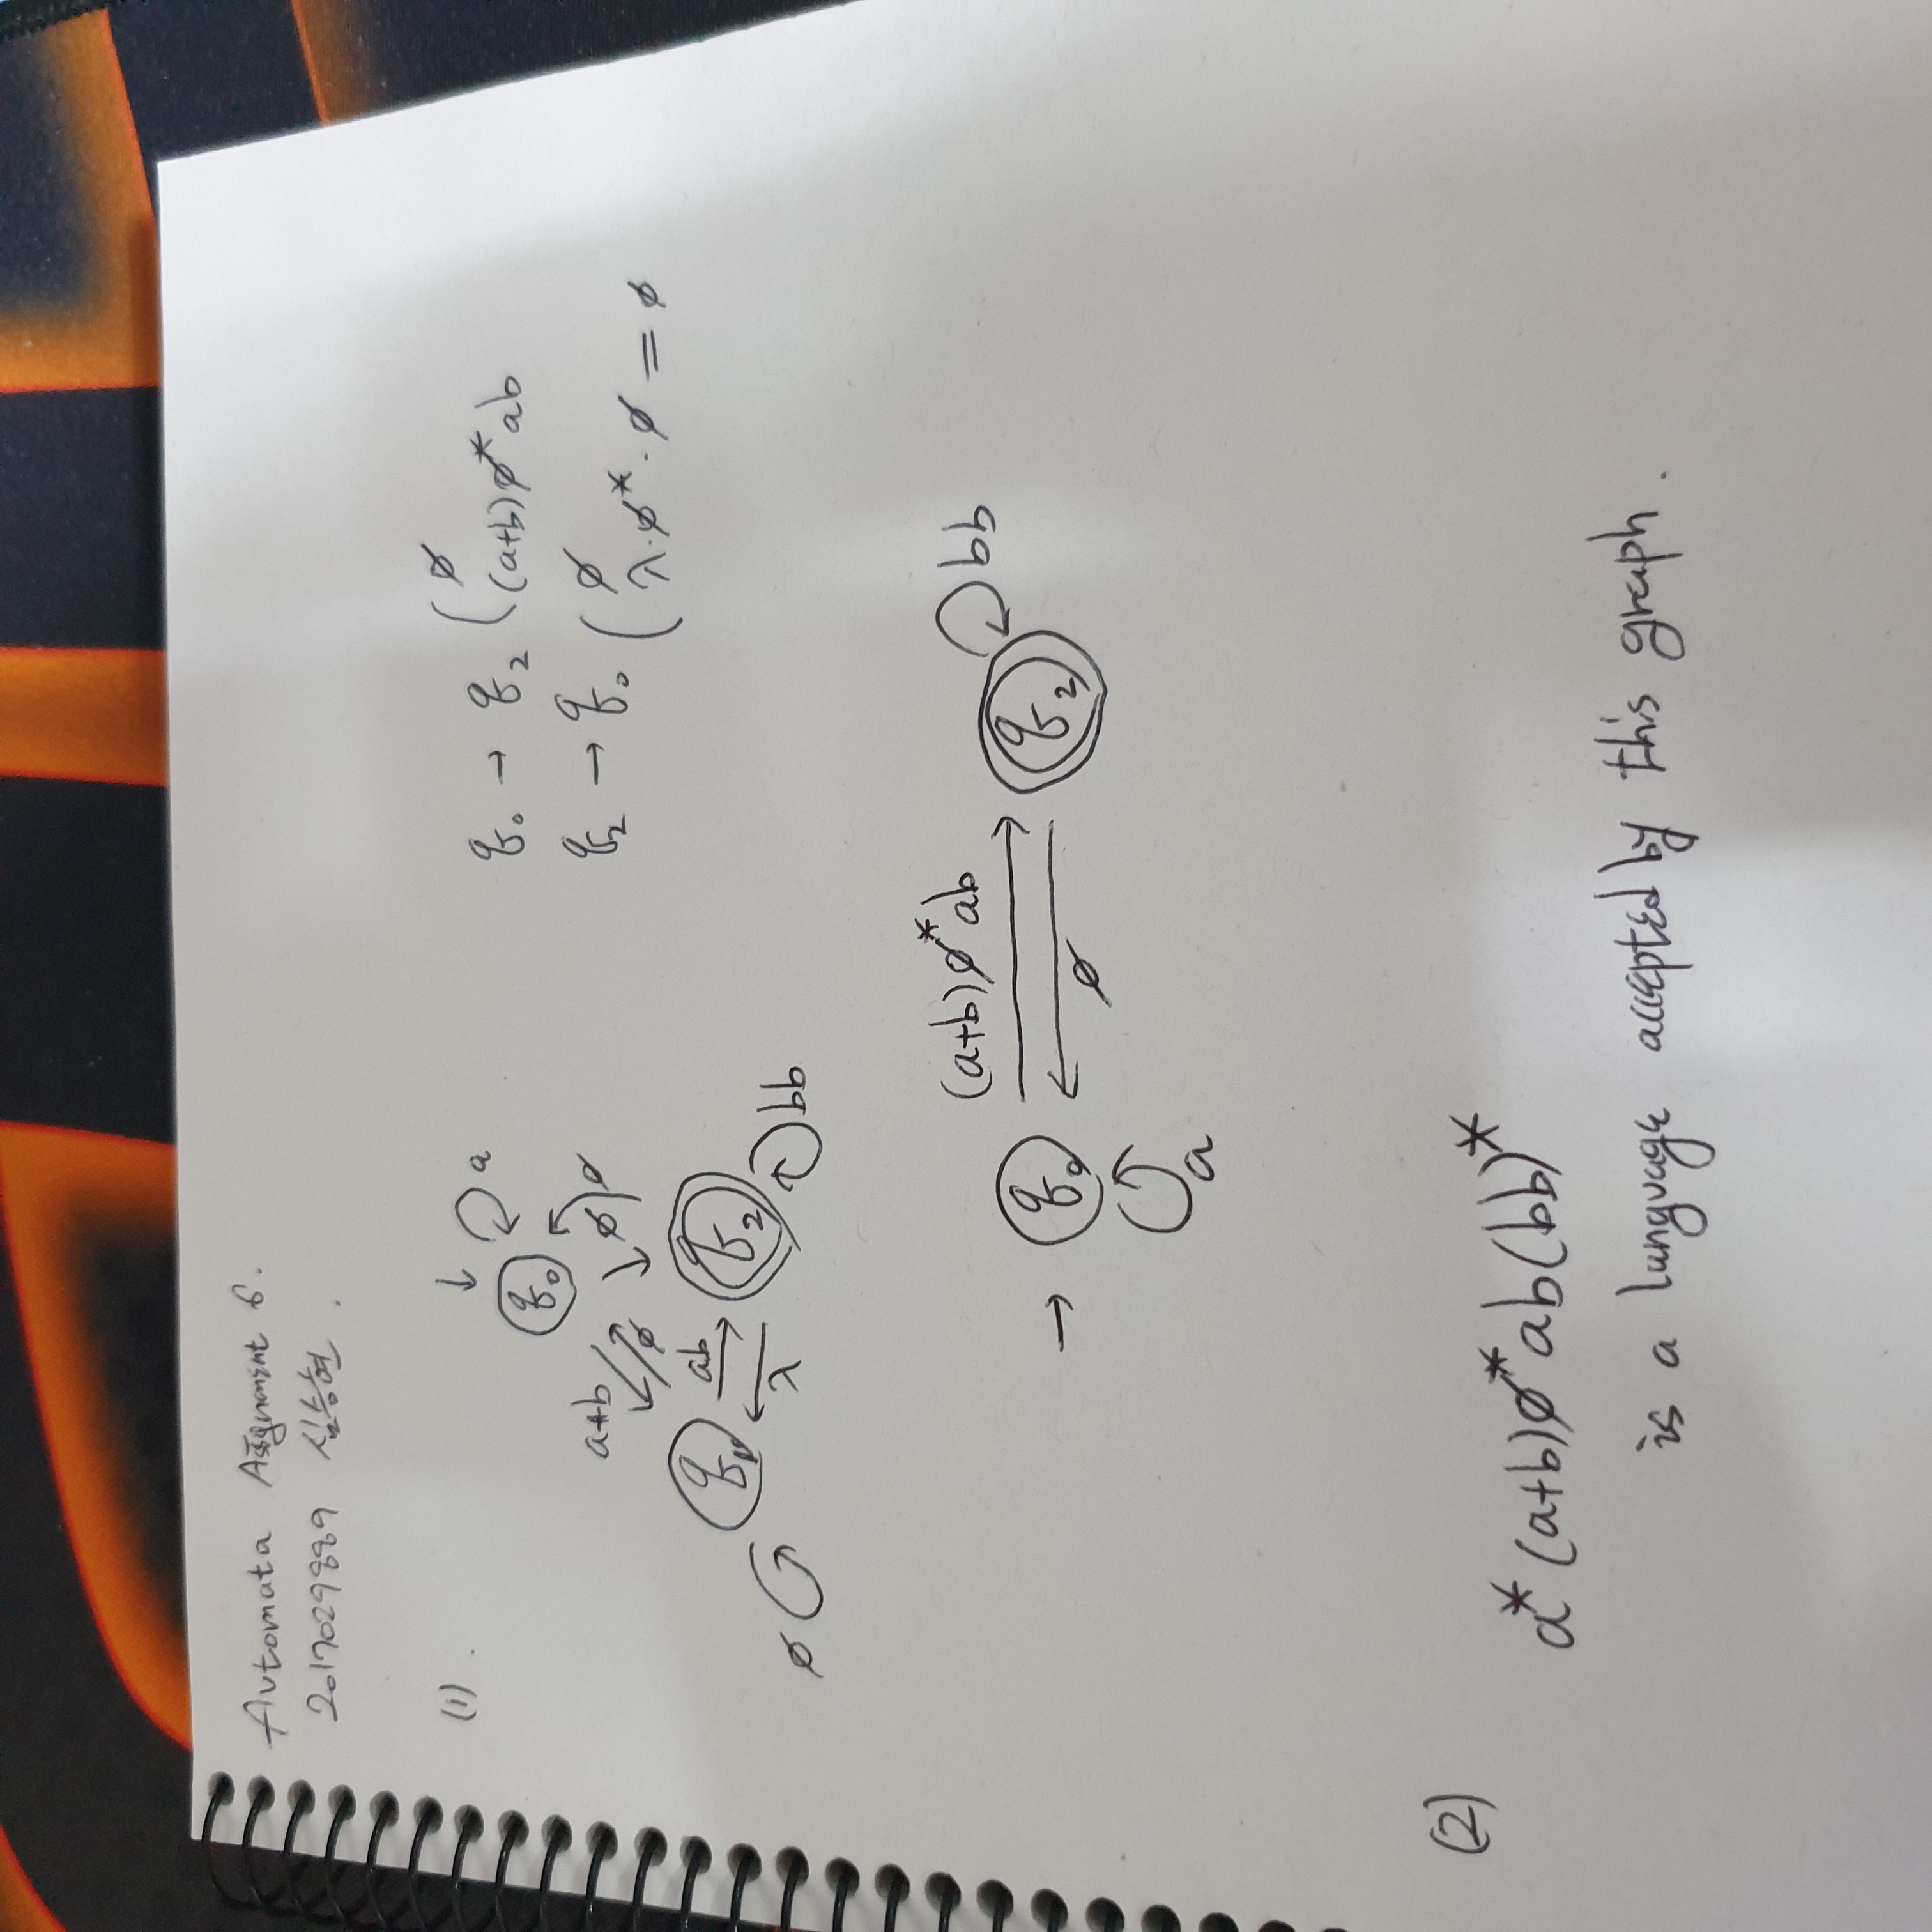 Automata Assignment 6.
2017029889 심승현.
(1).
a
q₀
a+b
ø
ø
ø
q₁
ab
λ
q₂
ø
bb
q₀ → q₂ ( ø
(a+b)ø*ab
q₂ → q₀ ( ø
λ·ø*·ø = ø
(a+b)ø*ab
bb
→ q₀
q₂
ø
a
(2)
a*(a+b)ø*ab(bb)*
is a language accepted by this graph.